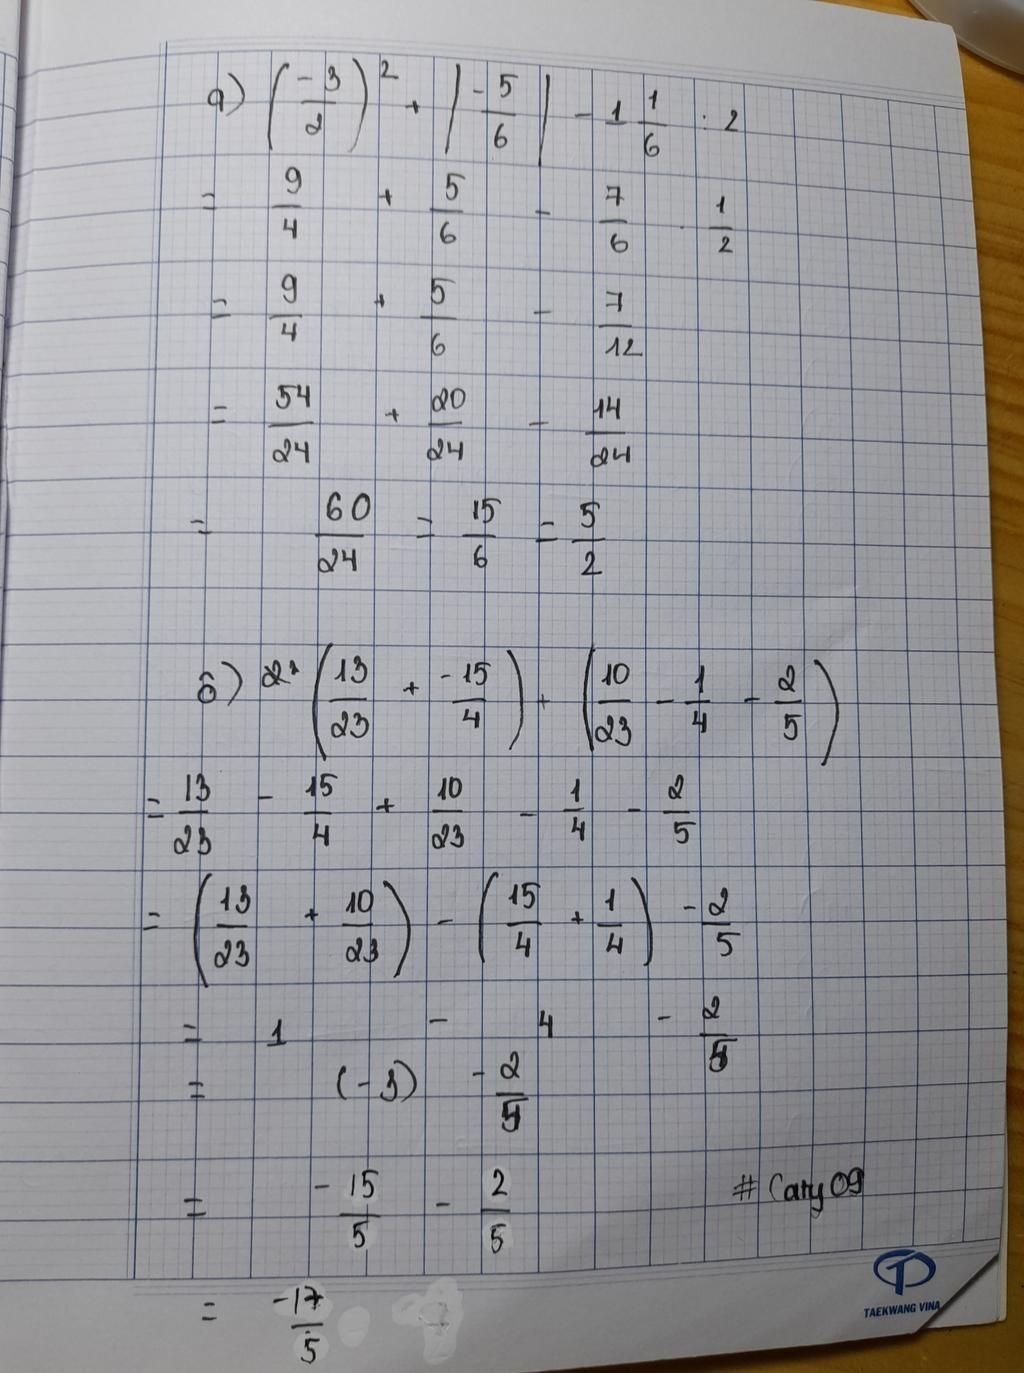 a) (-3/2)² + |-5/6| - 1 1/6 : 2
= 9/4 + 5/6 - 7/6 . 1/2
= 9/4 + 5/6 - 7/12
= 54/24 + 20/24 - 14/24
= 60/24 = 15/6 = 5/2
b) (13/23 + -15/4) + (10/23 - 1/4 - 2/5)
= 13/23 - 15/4 + 10/23 - 1/4 - 2/5
= (13/23 + 10/23) - (15/4 + 1/4) - 2/5
= 1 - 4 - 2/5
= (-3) - 2/5
= -15/5 - 2/5
# Cary09
= -17/5
TAEKWANG VINA